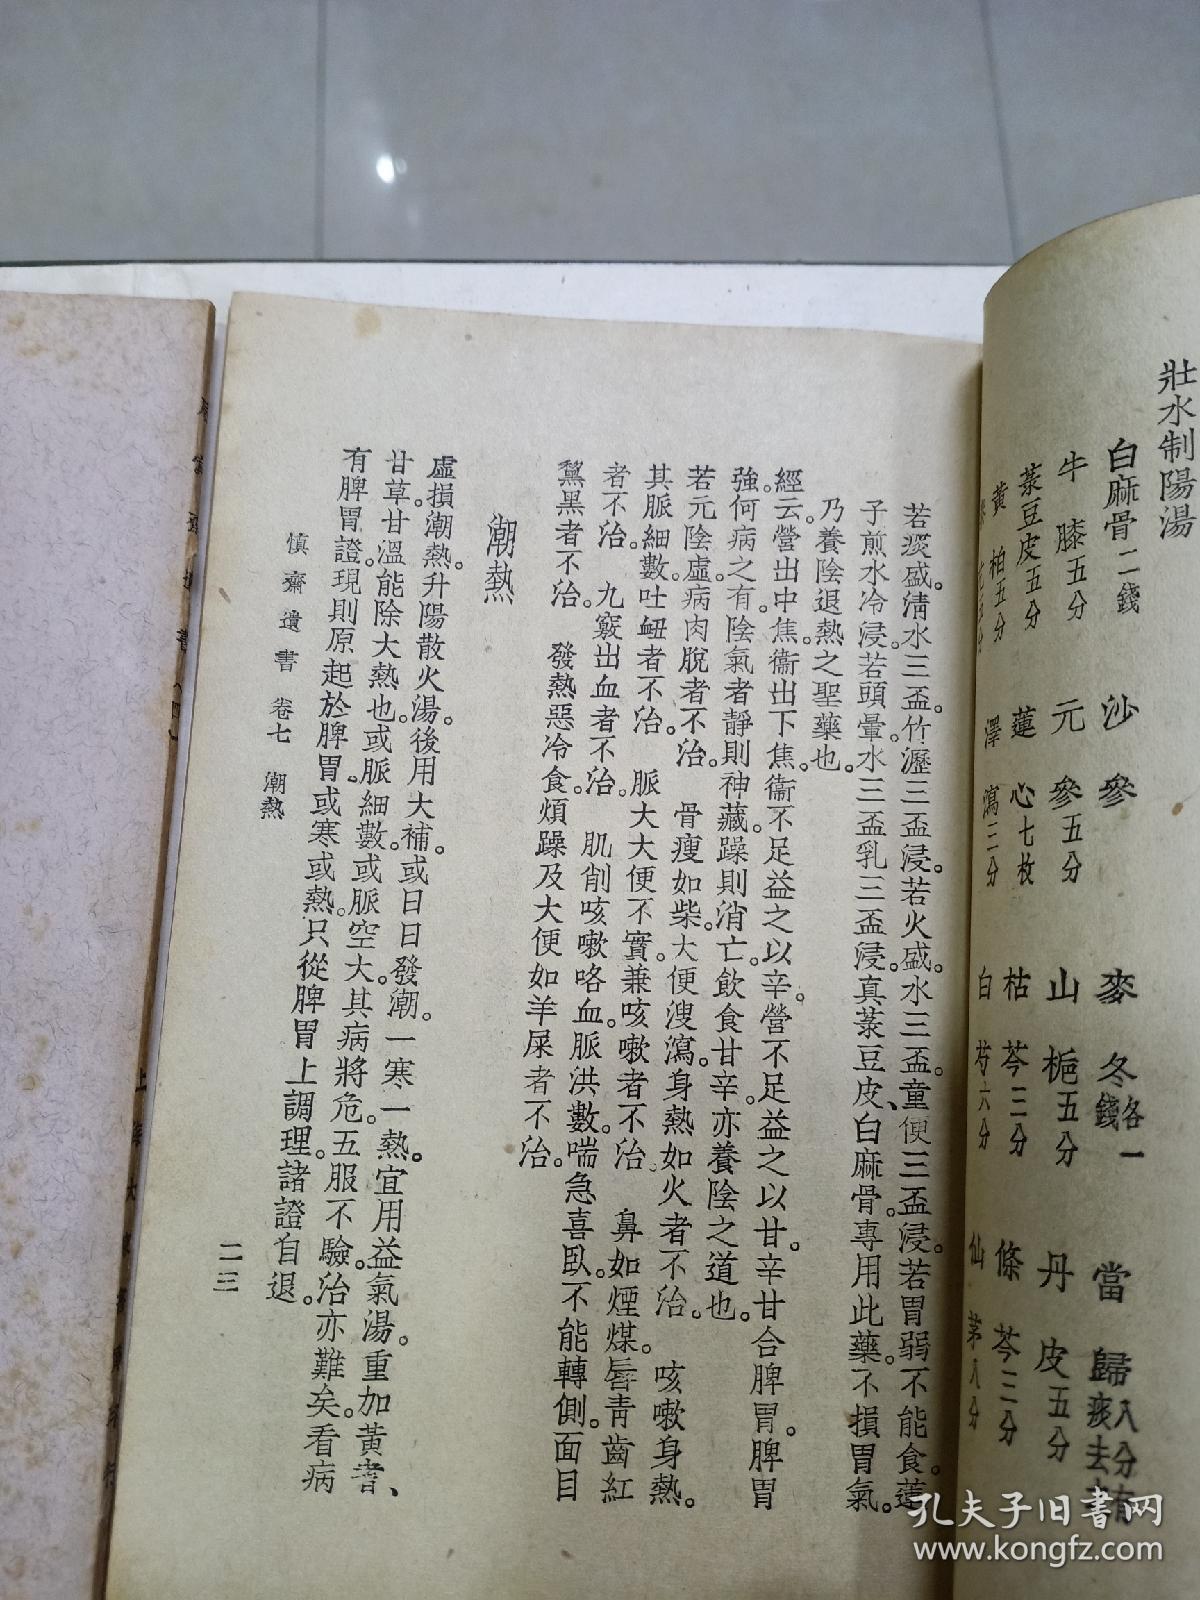 壯水制陽湯
白麻骨二錢　沙參　麥冬各一錢　當歸八分有痰去
牛膝五分　元參五分　山梔五分　丹皮五分
菉豆皮五分　蓮心七枚　枯芩三分　條芩三分
黃柏五分　澤瀉三分　白芍六分　仙茅八分
若痰盛。清水三盃。竹瀝三盃浸。若火盛。水三盃。童便三盃浸。若胃弱不能食。蓮
子煎水冷浸。若頭暈。水三盃乳三盃浸。真菉豆皮、白麻骨。專用此藥。不損胃氣。
乃養陰退熱之聖藥也。
經云。營出中焦。衞出下焦。衞不足益之以辛。營不足益之以甘。辛甘合脾胃。脾胃
強。何病之有。陰氣者靜則神藏。躁則消亡。飲食甘辛。亦養陰之道也。
若元陰虛。病肉脫者不治。　骨瘦如柴。大便溲瀉。身熱如火者不治。　咳嗽身熱。
其脈細數吐衄者不治。　脈大大便不實。兼咳嗽者不治　鼻如煙煤。唇青齒紅
者不治。　九竅出血者不治。　肌削咳嗽咯血。脈洪數。喘急喜臥。不能轉側。面目
黧黑者不治。　發熱惡冷食。煩躁及大便如羊屎者不治。
潮熱
虛損潮熱。升陽散火湯。後用大補。或日日發潮。一寒一熱。宜用益氣湯。重加黃耆、
甘草。甘溫能除大熱也。或脈細數。或脈空大。其病將危。五服不驗。治亦難矣。看病
有脾胃證。現則原起於脾胃。或寒或熱。只從脾胃上調理。諸證自退。
慎齋遺書　卷七　潮熱
二三
孔夫子旧书网
www.kongfz.com